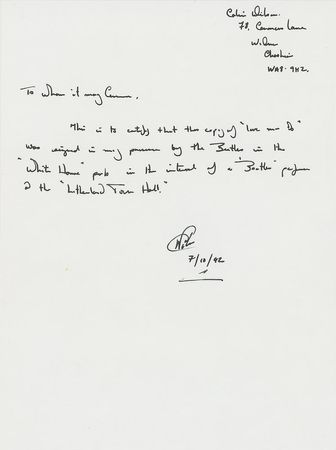 Colin Dilson.
78, Commers Lane
Widnes
Cheshire
WA8-9HZ.
To whom it may Concern,
This is to certify that this copy of "Love me Do"
was signed in my presence by the Beatles in the
"White House" pub in the interval of a "Beatles"
@ the "Litherland Town Hall."
7/10/92